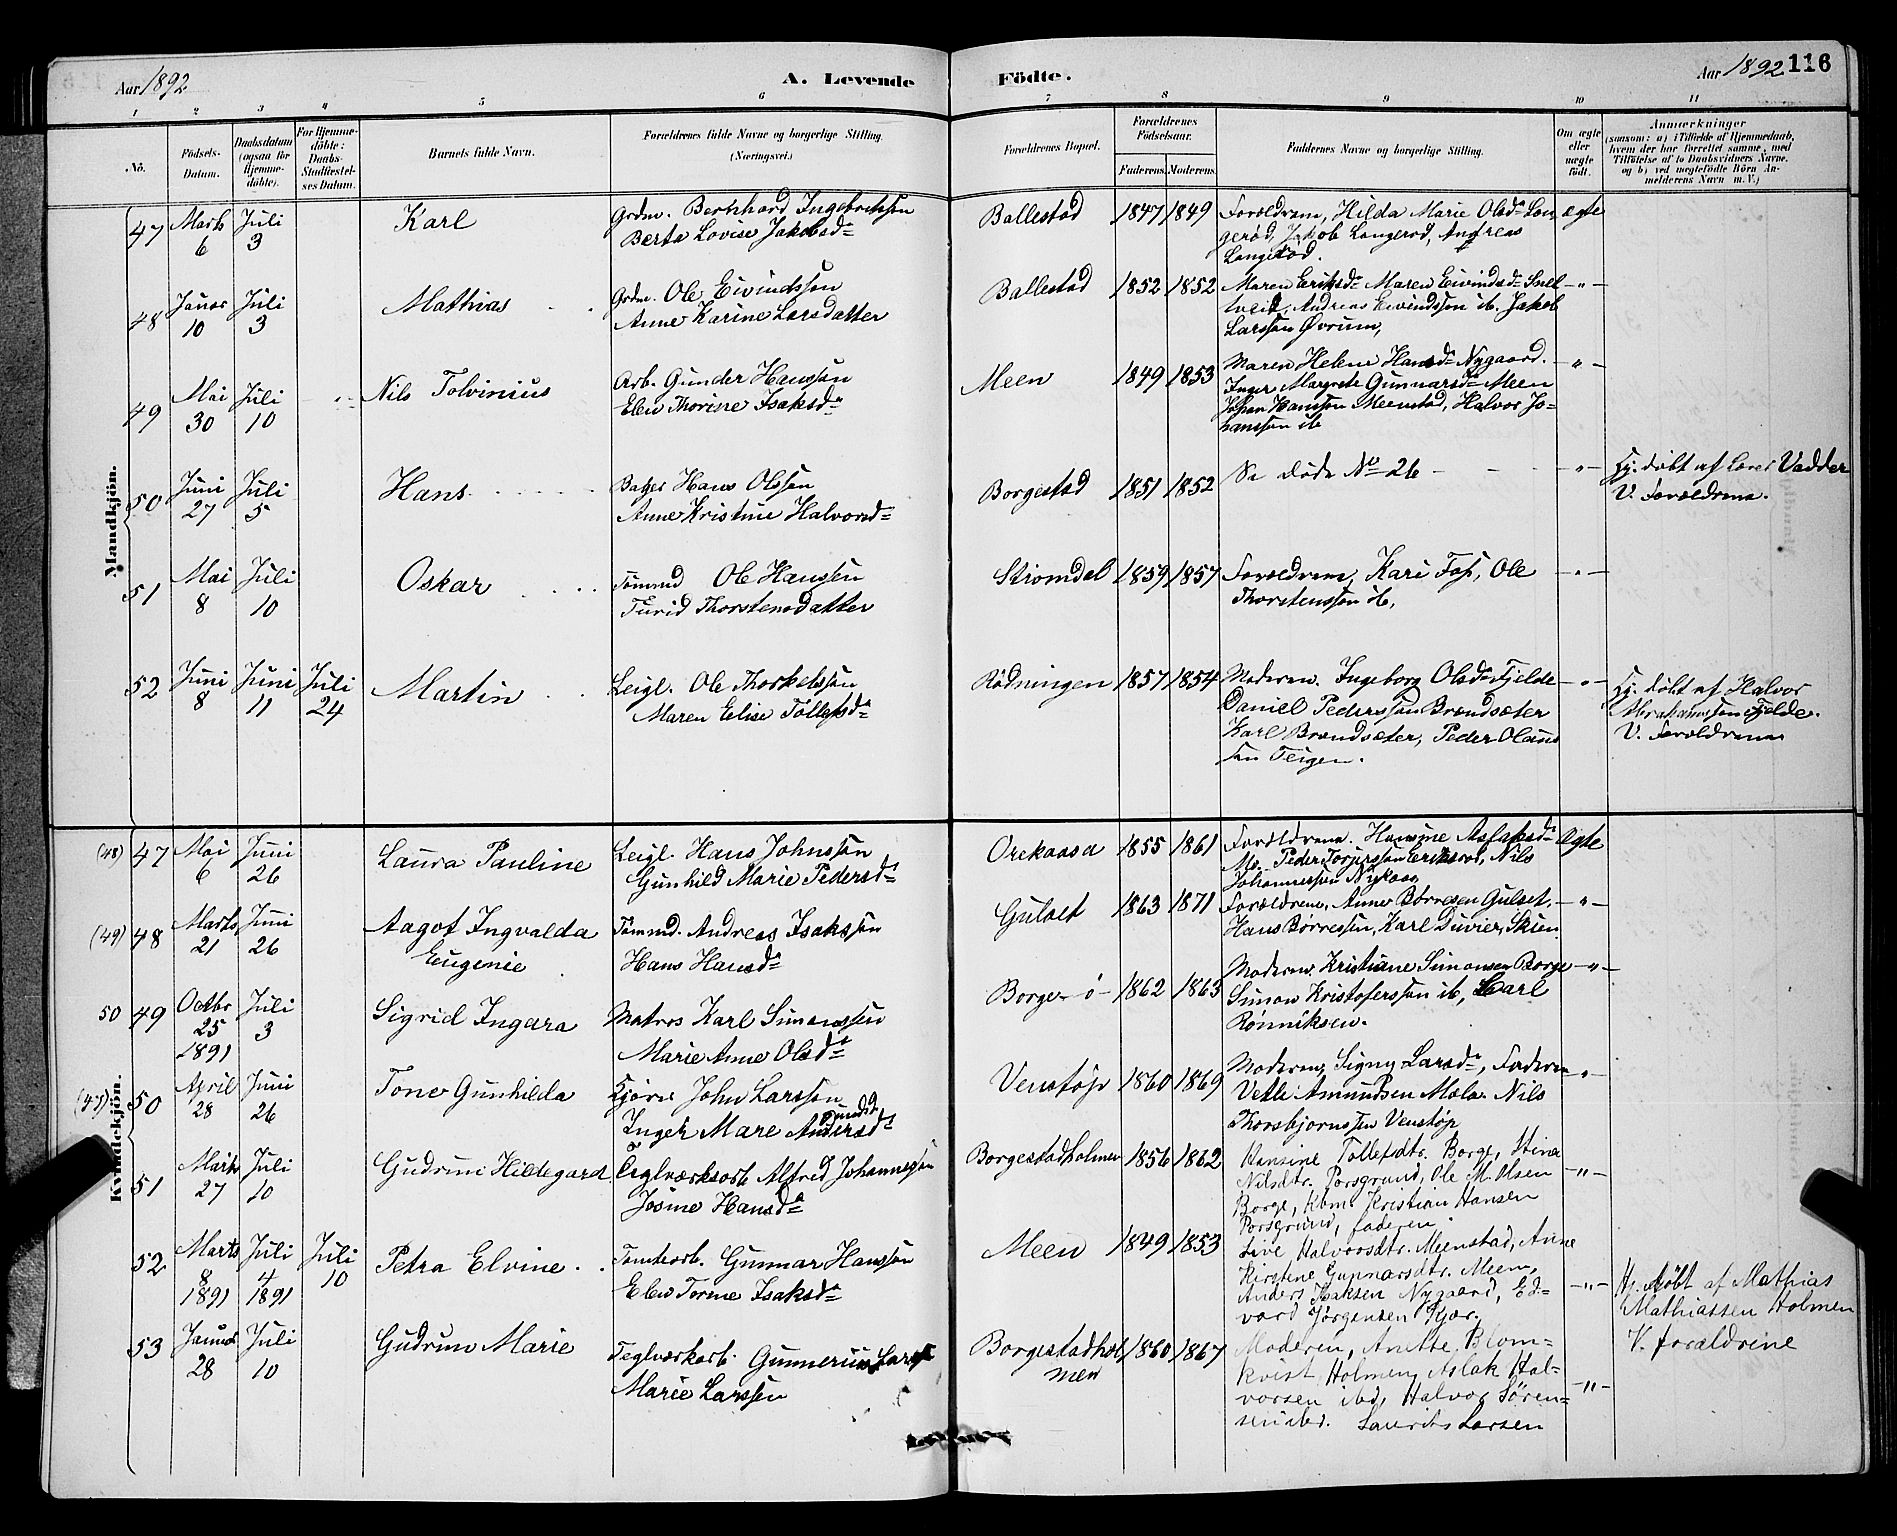 Aar 1892 A. Levende Födte. Aar 1892 116
1 2 3 4 5 6 7 8 9 10 11
No. Födsels-Datum. Daabsdatum (ogsaa for Hjemme-döbte). For Hjemme-döbte: Daabs-Stadfæstel-ses Datum. Barnets fulde Navn. Forældrenes fulde Navne og borgerlige Stilling. (Næringsvei.) Forældrenes Bopæl. Forældrenes Födselsaar. Faderens. Moderens. Faddernes Navne og borgerlige Stilling. Om ægte eller uægte födt. Anmærkninger (saasom: a) i Tilfælde af Hjemmedaab, hvem der har forrettet samme, med Tilföielse af to Daabsvidners Navne, og b) ved uægtefödte Börn An-melderens Navn m. V.)
Mandkjön.
47 Marts 6 Juli 3 Karl Grdm. Bernhard Ingebretssen
Berte Lovise Jakobsd=
Ballestad 1847 1849 Forældrene, Hilda Marie Olsd= Lan
gerød, Jakob Langerød, Andreas
Langerød. ægte
48 Januar 10 Juli 3 Mathias Grdm. Ole Eivindssøn
Anne Karine Larsdatter
Ballestad 1852 1852 Maren Eriksd= Maren Eivindsd= Snel
tveit, Andreas Eivindssøn ib. Jakob
Larssøn Øvrum, -"-
49 Mai 30 Juli 10 Nils Tolvinius Arb. Gunder Hanssøn
Elen Thorine Isaksd=
Meen 1849 1853 Maren Helene Hansd= Nygaard.
Inger Margrete Gunnarsd= Meen
Johan Hanssøn Meenstad, Halvor Jo=
hanssøn ib -"-
50 Juni 27 Juli 5 Hans Hans Olssøn
Anne Kristine Halvorsd=
Borgestad 1851 1852 Se døde No 26 -"- Hj. døbt af Lærer Vadder
V. Forældrene.
51 Mai 8 Juli 10 Oskar Tømmd Ole Hanssen
Turid Thorstensdatter
Strømdal 1859 1857 Forældrene, Kari Foss, Ole
Thorstenssøn ib, -"-
52 Juni 8 Juni 11 Juli 24 Martin Leigl. Ole Thorkelssøn
Maren Elise Tollefsd=
Rødningen 1857 1854 Moderen. Ingeborg Olsd= Fjelde
Daniel Pederssøn Brændsæter
Karl Brændsæter, Peder Olaus
søn Teigen. -"- Hj. døbt af Halvor
Abrahamssøn Fjelde.
V. Forældrene
Kvindekjön.
(48) 47 Mai 6 Juni 26 Laura Pauline Leigl. Hans Johnssøn
Gunhild Marie Pedersd=
Orekaasa 1855 1861 Forældrene. Hansine Aslaksd=
Peder Torjerssøn Nils
Johannessen Nykaas Ægte
(49) 48 Marts 21 Juni 26 Aagot Ingvalda
Eugenie Tømmd. Andreas Isakssøn
Hans Hansd=
Gulset 1863 1871 Forældrene, Anne Børresen Gulset.
Hans Børressen, Karl Duvier, Skien -"-
50 49 Octbr 25 1891 Juli 3 Sigrid Ingara Matros Karl Simonssøn
Marie Anne Olsd=
Borge-ø- 1862 1863 Moderen. Kristiane Simonsen Borge
Simon Kristoferssøn ib, Carl
Rønniksen. -"-
(45) 50 April 28 Juni 26 Tone Gunhilda John Larssøn
Inger Mare Amundsd=
Venstøp 1860 1869 Moderen, Signy Larsd=, Faderen
Vetle Amundsen Mæla. Nils
Thorsbjørnssøn Venstøp -"-
51 Marts 27 Juli 10 Gudrun Hildegard Teglværksarb Alfred Johannessøn
Josine Hansd=
Borgestadholmen 1856 1862 Hansine Tollefsdtr. Borge, Stine
Nilsdtr. Porsgrund, Ole M. Olsen
Borge, Kbm. Kristian Hansen
Porsgrund, faderen. -"-
52 Marts 8 1891 Juli 4 1891 Juli 10 Petra Elvine. Tomtearb. Gunnar Hanssøn
Elen Torine Isaksd=
Meen 1849 1853 Live Halvorsdtr. Meenstad, Anne
Kirstine Gunnarsdtr. Meen,
Anders Isaksen Nygaard, Ed=
vard Jørgensen Kjær. -"- Hj. døbt af Mathias
Mathiassen Holmen
V. forældrene
53 Januar 28 Juli 10 Gudrun Marie Teglværkarb. Gunnerius Larss
Marie Larssen
Borgestadhol
men 1860 1867 Moderen, Anette Blom-
kvist, Holmen, Aslak Hal-
vorsen ibd, Halvor Søren=
sen ibd. Laurits Larsen -"-